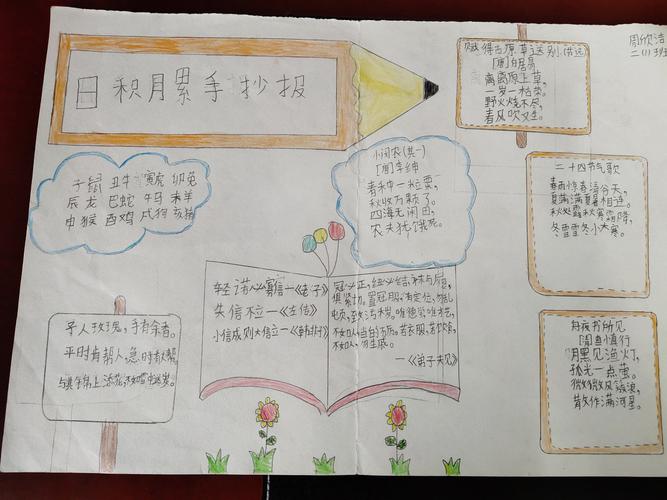 日积月累手抄报
周欣洁
二(1)班
子鼠 丑牛 寅虎 卯兔
辰龙 巳蛇 午马 未羊
申猴 酉鸡 戌狗 亥猪
悯农(其一)
[唐]李绅
春种一粒粟,
秋收万颗子。
四海无闲田,
农夫犹饿死。
赋得古原草送别(节选)
[唐]白居易
离离原上草,
一岁一枯荣。
野火烧不尽,
春风吹又生。
二十四节气歌
春雨惊春清谷天,
夏满芒夏暑相连。
秋处露秋寒霜降,
冬雪雪冬小大寒。
舟夜书所见
[清]查慎行
月黑见渔灯,
孤光一点萤。
微微风簇浪,
散作满河星。
轻诺必寡信—《老子》
失信不立—《左传》
小信成则大信立—《韩非子》
冠必正,纽必结,袜与履,
俱紧切。置冠服,有定位,勿乱
顿,致污秽。唯德学,唯才艺,
不如人,当自励。若衣服,若饮食,
不如人,勿生戚。
—《弟子规》
予人玫瑰,手有余香。
平时肯帮人,急时有人帮。
与其锦上添花,不如雪中送炭。